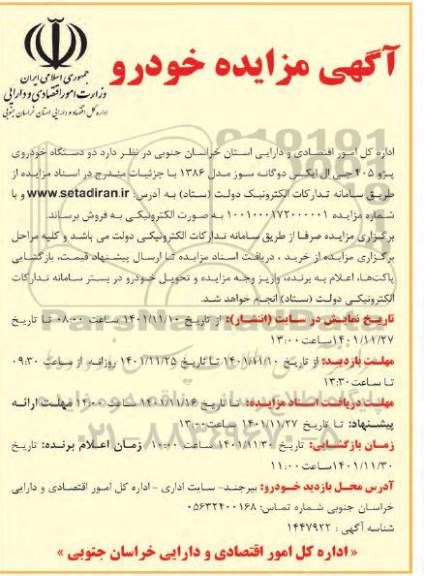 آگهی مزایده خودرو
جمهوری اسلامی ایران
وزارت امور اقتصادی و دارایی
اداره کل امور اقتصاد و دارایی استان خراسان جنوبی
اداره کل امور اقتصادی و دارایی استان خراسان جنوبی در نظر دارد دو دستگاه خودروی
پژو ۴۰۵ جی ال ایکس دوگانه سوز مدل ۱۳۸۶ با جزئیات مندرج در اسناد مزایده از
طریق سامانه تدارکات الکترونیک دولت (ستاد) به آدرس: www.setadiran.ir و با
شماره مزایده ۱۰۰۱۰۰۰۱۷۲۰۰۰۰۰۱ به صورت الکترونیکی به فروش برساند.
برگزاری مزایده صرفا از طریق سامانه تدارکات الکترونیکی دولت می باشد و کلیه مراحل
برگزاری مزایده از خرید ، دریافت اسناد مزایده تا ارسال پیشنهاد قیمت، بازگشایی
پاکت‌ها، اعلام به برنده، واریز وجه مزایده و تحویل خودرو در بستر سامانه تدارکات
الکترونیکی دولت (ستاد) انجام خواهد شد.
تاریخ نمایش در سایت (انتشار): از تاریخ ۱۴۰۱/۱۱/۱۰ ساعت ۰۸:۰۰ تا تاریخ
۱۴۰۱/۱۱/۲۷ساعت ۱۳:۰۰
مهلت بازدید: از تاریخ ۱۴۰۱/۱۱/۱۰ تا تاریخ ۱۴۰۱/۱۱/۲۵ روزانه از ساعت ۰۹:۳۰
تا ساعت۱۳:۳۰
مهلت دریافت اسناد مزایده: تا تاریخ ۱۴۰۱/۱۱/۱۶ ساعت ۱۴:۰۰ مهلت ارائه
پیشنهاد: تا تاریخ ۱۴۰۱/۱۱/۲۷ ساعت۱۳:۰۰
زمان بازگشایی: تاریخ ۱۴۰۱/۱۱/۳۰ ساعت ۱۰:۰۰ زمان اعلام برنده: تاریخ
۱۴۰۱/۱۱/۳۰ساعت ۱۱:۰۰
آدرس محل بازدید خودرو: بیرجند- سایت اداری -اداره کل امور اقتصادی و دارایی
خراسان جنوبی شماره تماس: ۰۵۶۳۲۴۰۰۱۶۸
شناسه آگهی : ۱۴۴۷۹۲۲
« اداره کل امور اقتصادی و دارایی خراسان جنوبی »